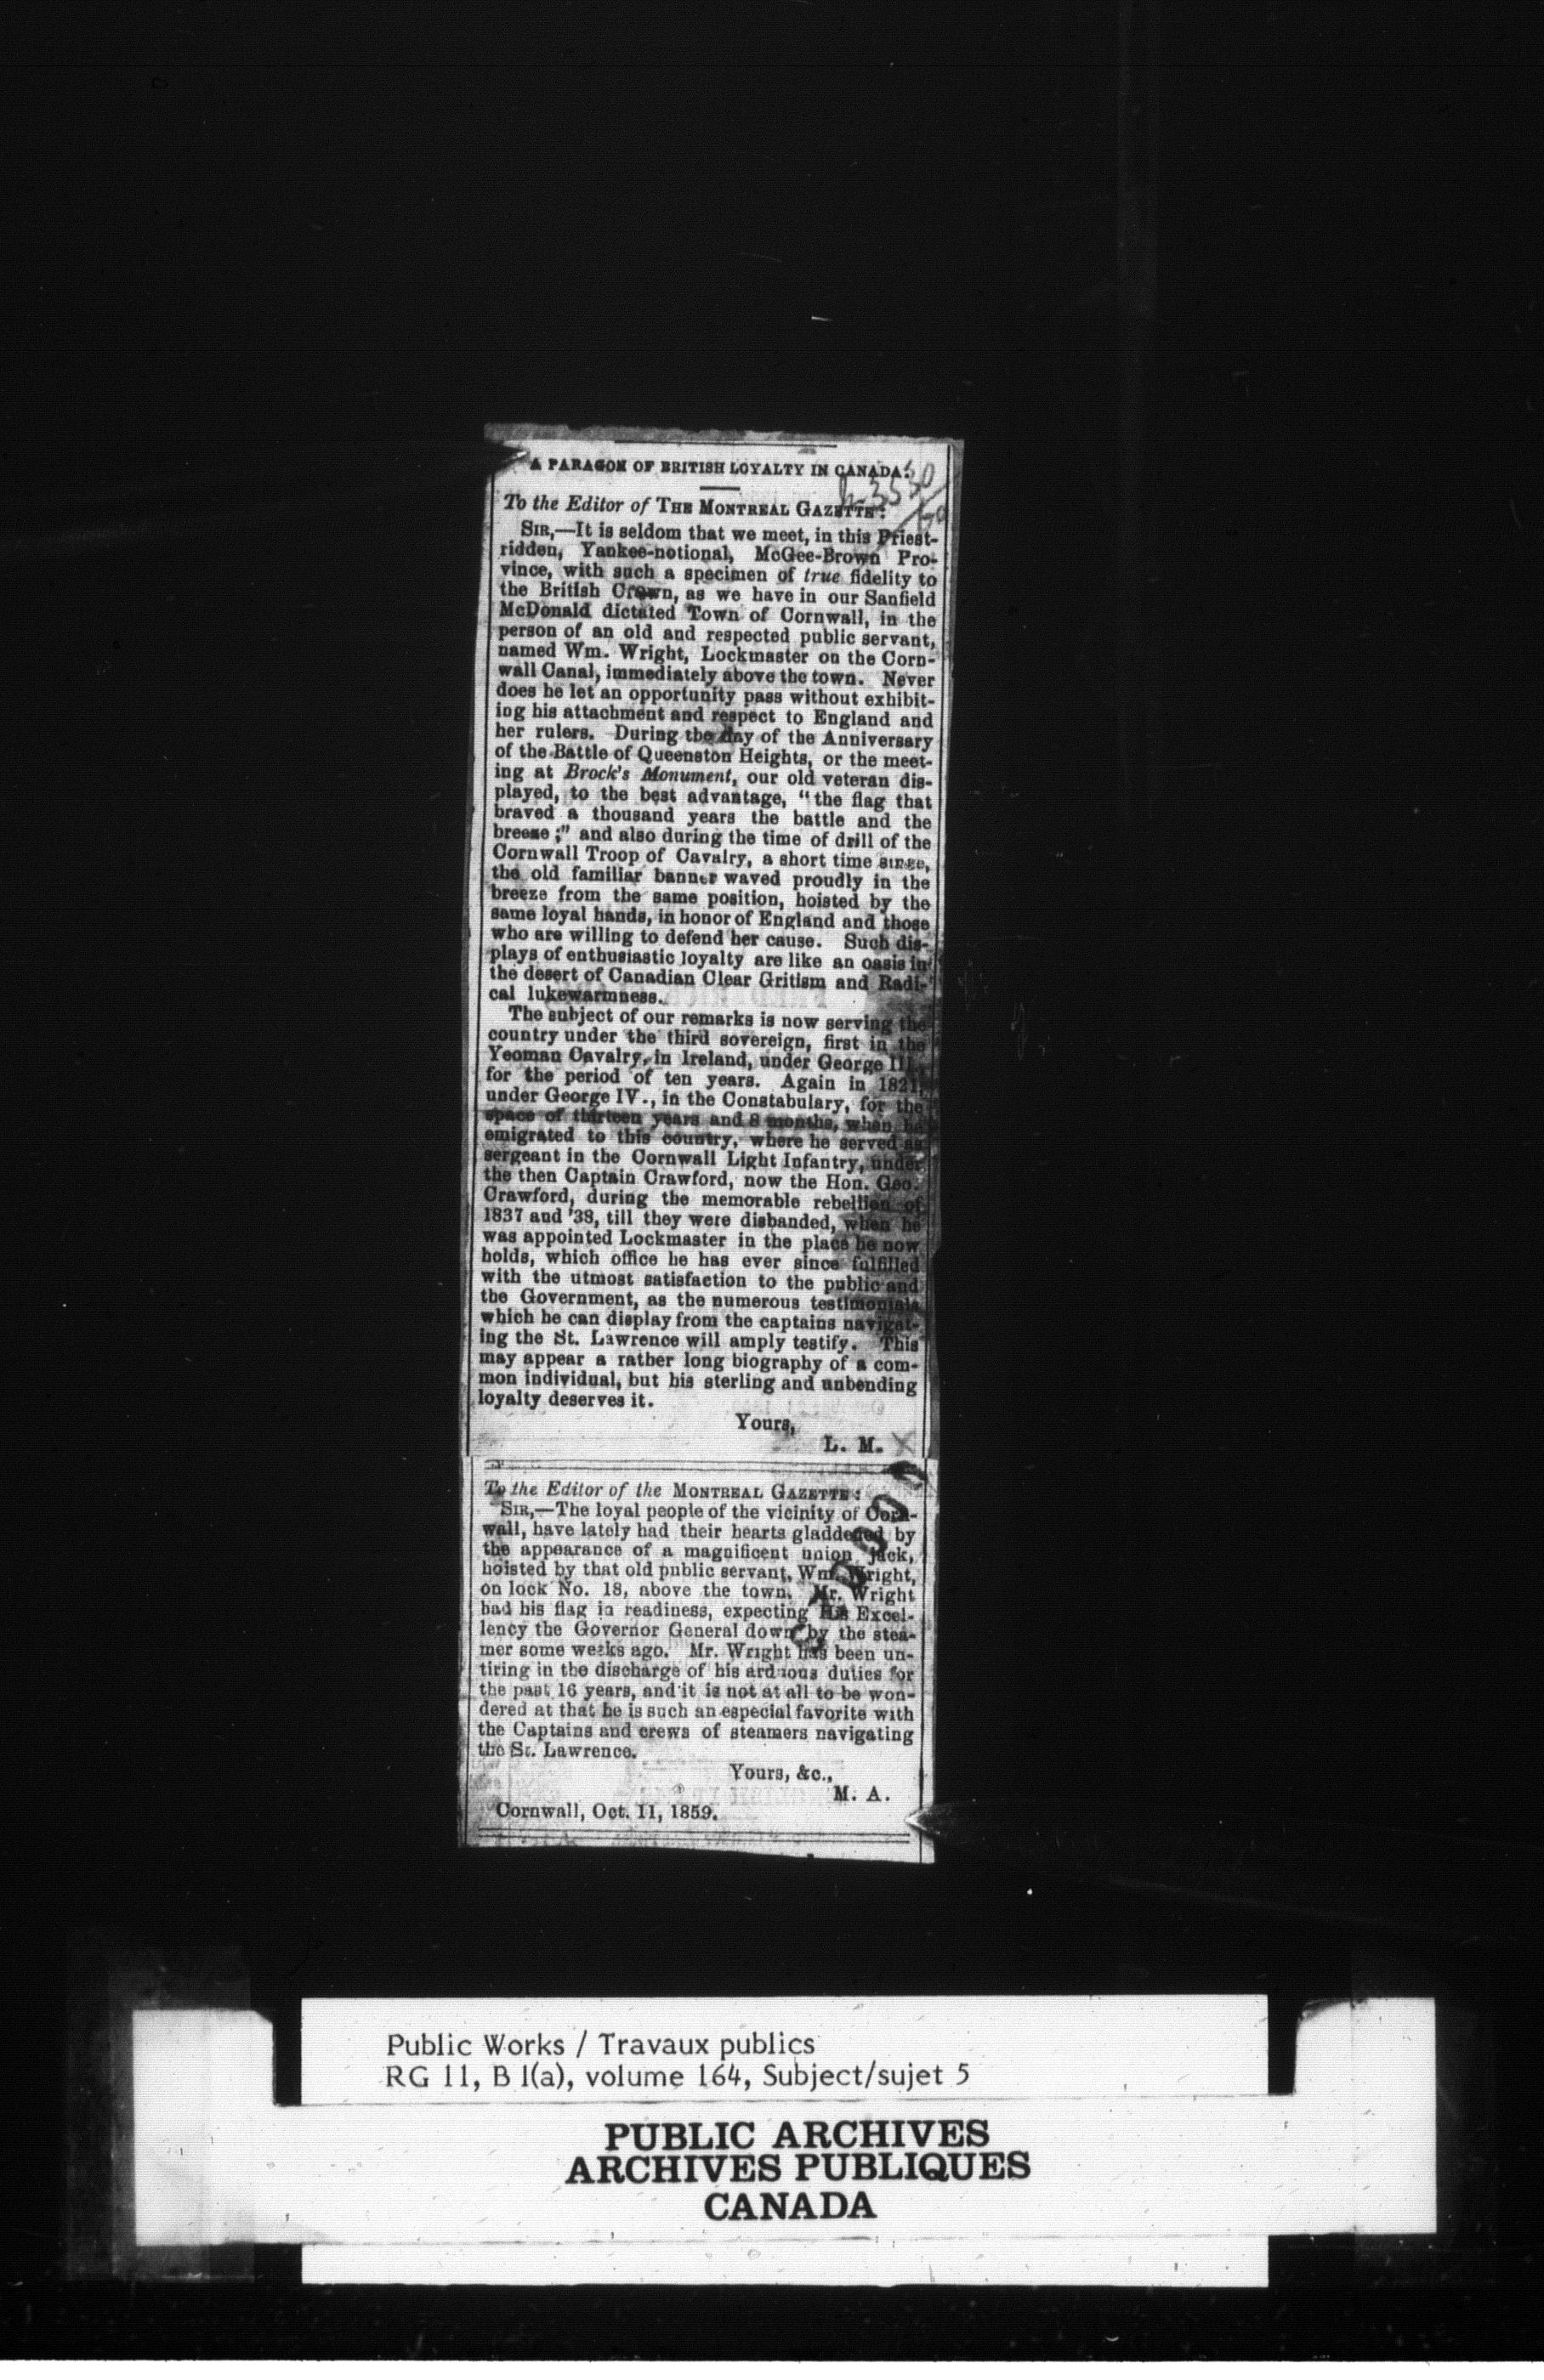 A PARAGON OF BRITISH LOYALTY IN CANADA.
h-3530/60
To the Editor of THE MONTREAL GAZETTE:
SIR,—It is seldom that we meet, in this Priest-
ridden, Yankee-notional, McGee-Brown Pro-
vince, with such a specimen of true fidelity to
the British Crown, as we have in our Sanfield
McDonald dictated Town of Cornwall, in the
person of an old and respected public servant,
named Wm. Wright, Lockmaster on the Corn-
wall Canal, immediately above the town. Never
does he let an opportunity pass without exhibit-
ing his attachment and respect to England and
her rulers. During the day of the Anniversary
of the Battle of Queenston Heights, or the meet-
ing at Brock's Monument, our old veteran dis-
played, to the best advantage, "the flag that
braved a thousand years the battle and the
breeze;" and also during the time of drill of the
Cornwall Troop of Cavalry, a short time since,
the old familiar banner waved proudly in the
breeze from the same position, hoisted by the
same loyal hands, in honor of England and those
who are willing to defend her cause. Such dis-
plays of enthusiastic loyalty are like an oasis in
the desert of Canadian Clear Gritism and Radi-
cal lukewarmness.
The subject of our remarks is now serving the
country under the third sovereign, first in the
Yeoman Cavalry, in Ireland, under George III.,
for the period of ten years. Again in 1821,
under George IV., in the Constabulary, for the
space of thirteen years and 8 months, when he
emigrated to this country, where he served as
sergeant in the Cornwall Light Infantry, under
the then Captain Crawford, now the Hon. Geo.
Crawford, during the memorable rebellion of
1837 and '38, till they were disbanded, when he
was appointed Lockmaster in the place he now
holds, which office he has ever since fulfilled
with the utmost satisfaction to the public and
the Government, as the numerous testimonials
which he can display from the captains navigat-
ing the St. Lawrence will amply testify. This
may appear a rather long biography of a com-
mon individual, but his sterling and unbending
loyalty deserves it.
Yours,
L. M.
To the Editor of the MONTREAL GAZETTE:
SIR,—The loyal people of the vicinity of Corn-
wall, have lately had their hearts gladdened by
the appearance of a magnificent union jack,
hoisted by that old public servant, Wm. Wright,
on lock No. 18, above the town. Mr. Wright
had his flag in readiness, expecting His Excel-
lency the Governor General down by the stea-
mer some weeks ago. Mr. Wright has been un-
tiring in the discharge of his arduous duties for
the past 16 years, and it is not at all to be won-
dered at that he is such an especial favorite with
the Captains and crews of steamers navigating
the St. Lawrence.
Yours, &c.,
M. A.
Cornwall, Oct. 11, 1859.
Public Works / Travaux publics
RG 11, B 1(a), volume 164, Subject/sujet 5
PUBLIC ARCHIVES
ARCHIVES PUBLIQUES
CANADA